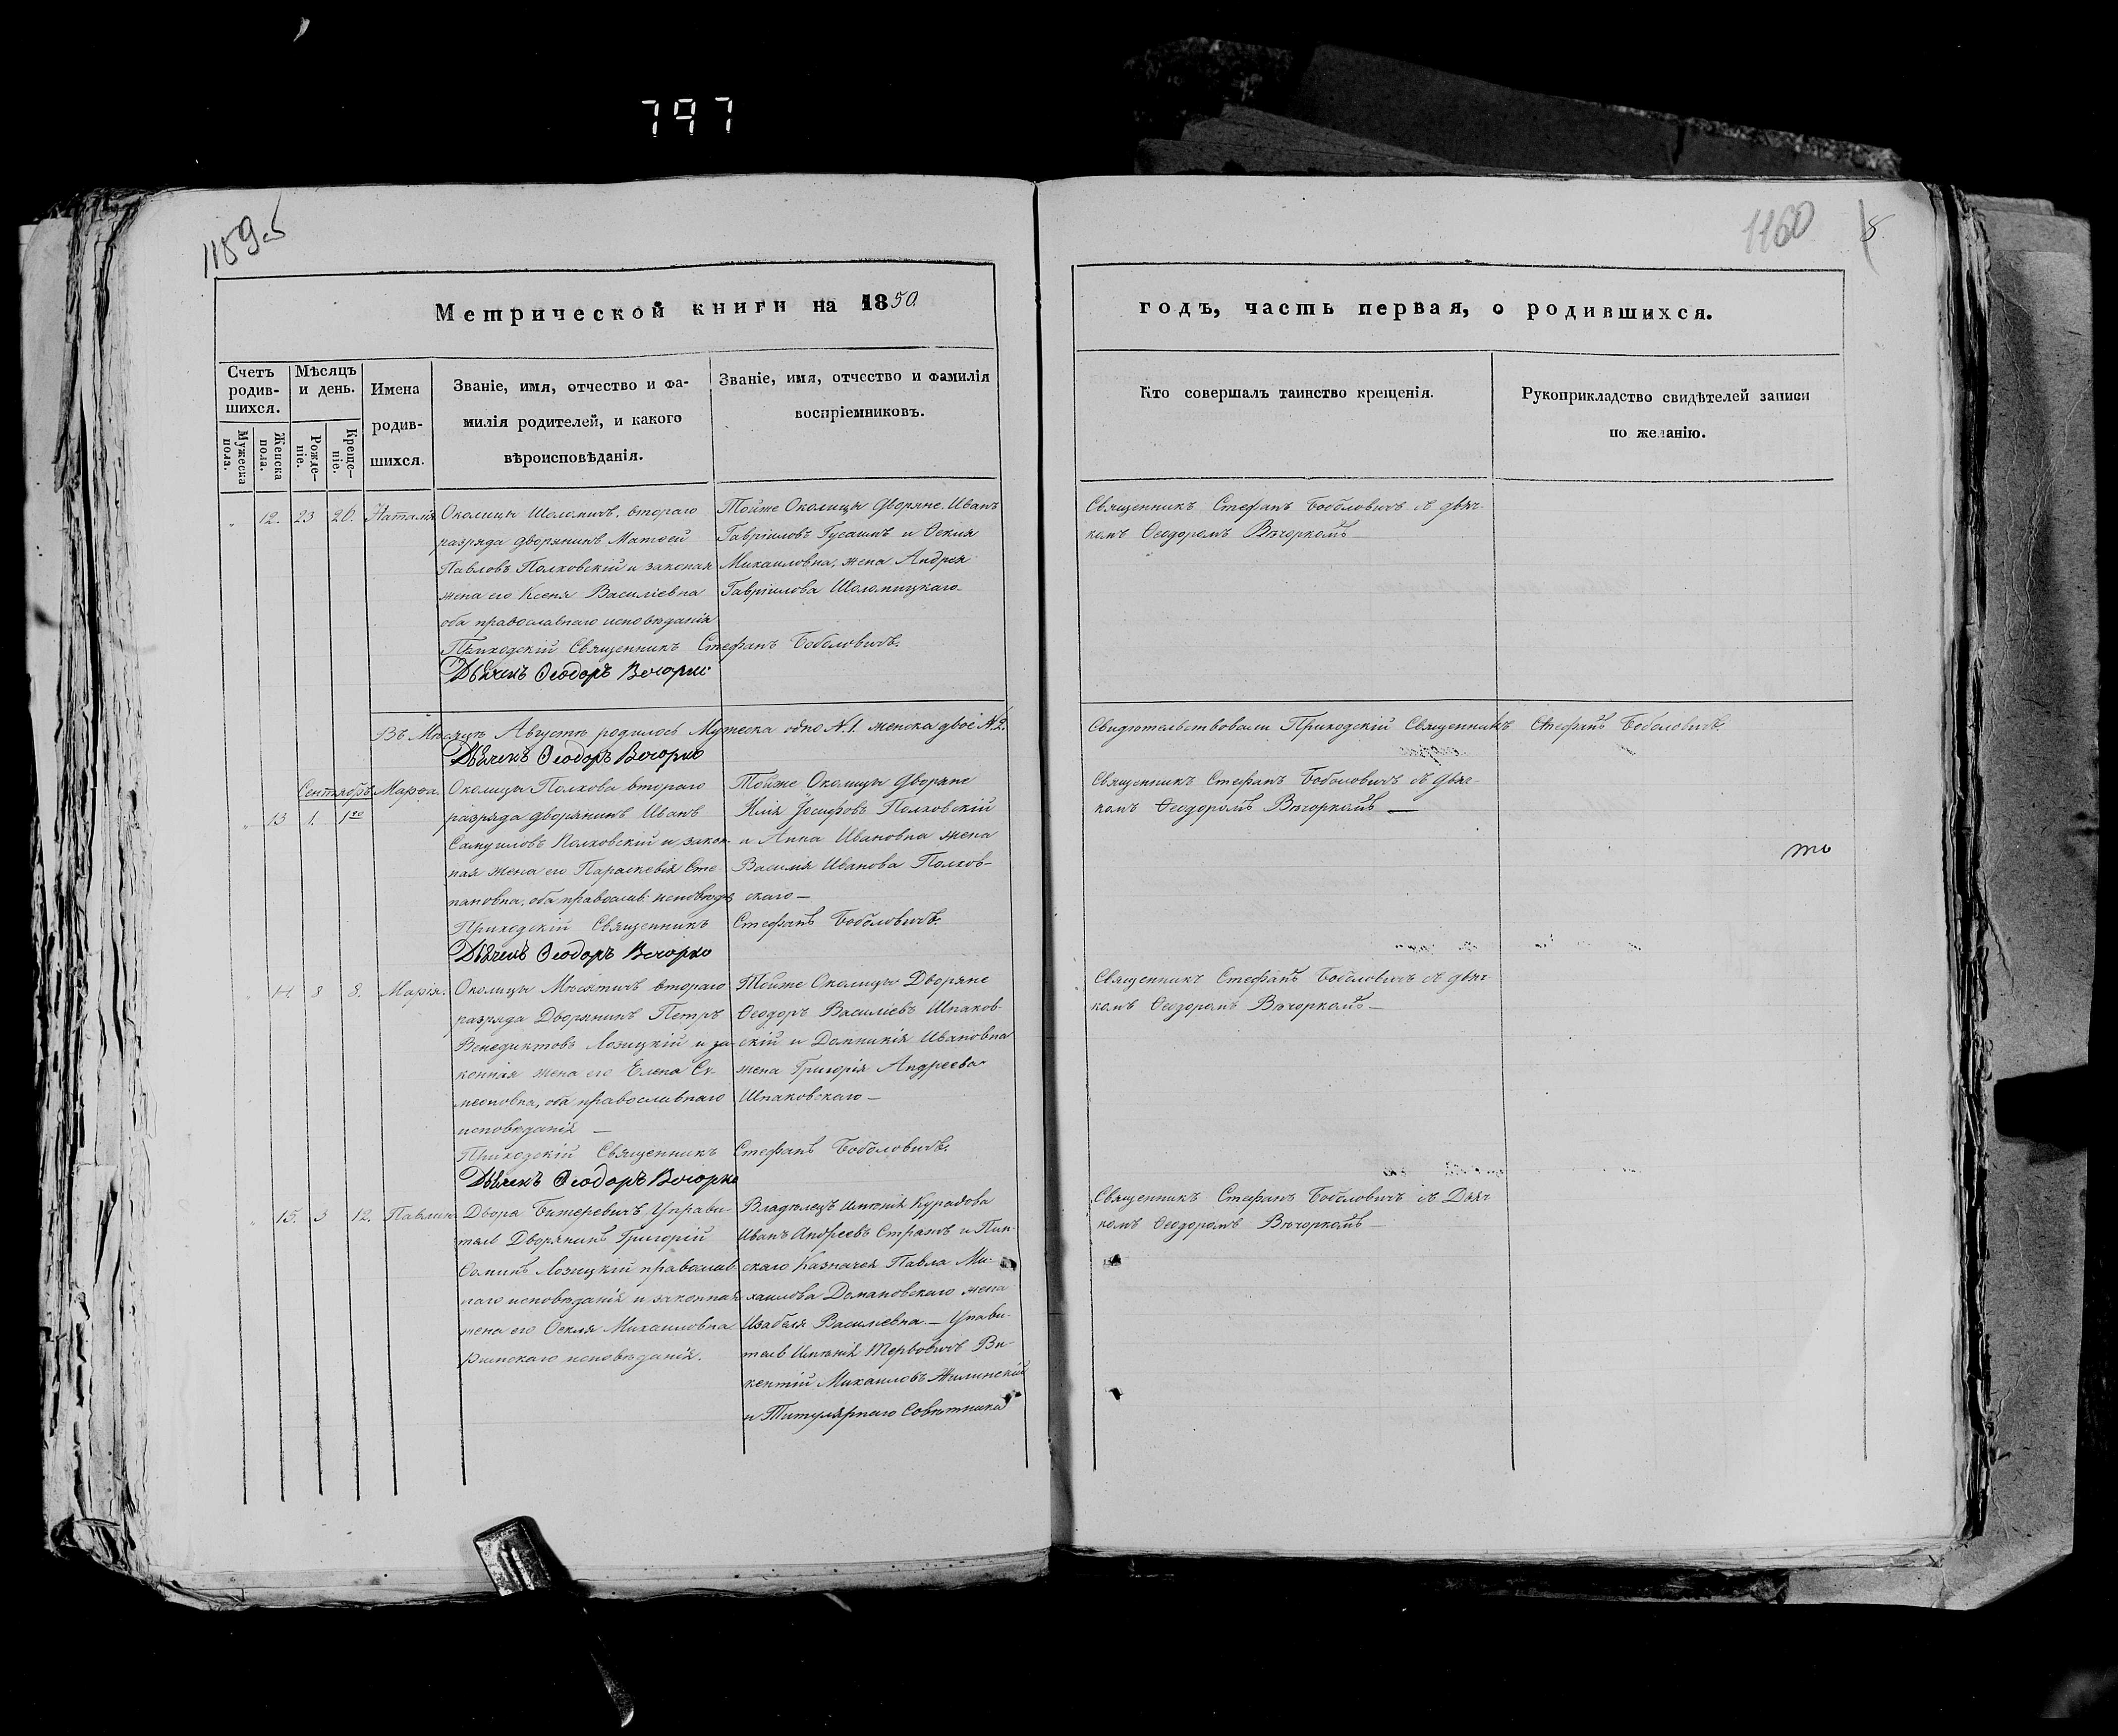 797
1159об
1160
Метрической книги на 1850
годъ, часть первая, о родившихся.
Счетъ родив-шихся.
Мужеска пола.
Женска пола.
Мѣсяцъ и день.
Рожде-ніе.
Креще-ніе.
Имена
родив-
шихся.
Званіе, имя, отчество и фа-
милія родителей, и какого
вѣроисповѣданія.
Званіе, имя, отчество и фамилія
воспріемниковъ.
Кто совершалъ таинство крещенія.
Рукоприкладство свидѣтелей записи
по желанію.
" 12. 23 26. Наталія
Околицы Шоломичъ, втораго
разряда дворянинъ Матѳей
Павловъ Полховскій и законая
жена его Ксенія Василіевна
оба православнаго исповѣданія
Тойже Околицы Дворяне. Иванъ
Гавріиловъ Гусашъ и Ѳекла
Михаиловна, жена Андрея
Гавріилова Шоломицкаго
Священникъ Стефанъ Бобёловичъ съ дьяч-
комъ Ѳеодоромъ Вѣчоркомъ
Приходскій Священникъ Стефанъ Бобёловичъ.
Дьячекъ Ѳеодоръ Вечорко
Въ Мѣсяцѣ Августѣ родилось Мужеска одно N. 1. женска двое N. 2.
Дьячекъ Ѳеодоръ Вечорко
Свидѣтельствовали Приходскій Священникъ Стефанъ Бобёловичъ.
Сентябрь
" 13 1. 1го Марѳа.
Околицы Полхова втораго
разряда дворянинъ Иванъ
Самуиловъ Полховскій и закон-
ная жена его Параскевія Сте-
пановна, оба православ: исповѣда
Тойже Околицы Дворяне
Илія Іосифовъ Полховскій
и Анна Ивановна жена
Василія Иванова Полхов-
скаго
Священникъ Стефанъ Бобёловичъ съ дьяч-
комъ Ѳеодоромъ Вѣчоркомъ
то
Приходскій Священникъ Стефанъ Бобёловичъ.
Дьячекъ Ѳеодоръ Вечорко
" 14. 8 8. Марія.
Околицы Мѣсятичъ втораго
разряда Дворянинъ Петръ
Венедиктовъ Лозицкій и за-
конная жена его Елена Си-
меоновна, оба православнаго
исповѣданія
Тойже Околицы Дворяне
Ѳеодоръ Василіевъ Шпаков-
скій и Домникія Ивановна
жена Григорія Андреева
Шпаковскаго
Священникъ Стефанъ Бобёловичъ съ дьяч-
комъ Ѳеодоромъ Вѣчоркомъ
Приходскій Священникъ Стефанъ Бобёловичъ.
Дьячекъ Ѳеодоръ Вечорко
" 15. 3 12. Павлина
Двора Бижеревичъ Управи-
тель Дворянинъ Григорій
Ѳоминъ Лозицкій православ-
наго исповѣданія и законная
жена его Ѳекла Михаиловна
римскаго исповѣданія.
Владѣлецъ имѣнія Курадова
Иванъ Андреевъ Стражъ и Пин-
скаго Казначея Павла Ми-
хаилова Домановскаго жена
Изабела Василіевна. — Управи-
тель Имѣнія Терѳовичъ Ви-
кентій Михаиловъ Жилинскій
и Титулярнаго Совѣтника
Священникъ Стефанъ Бобёловичъ съ Дьяч-
комъ Ѳеодоромъ Вѣчоркомъ